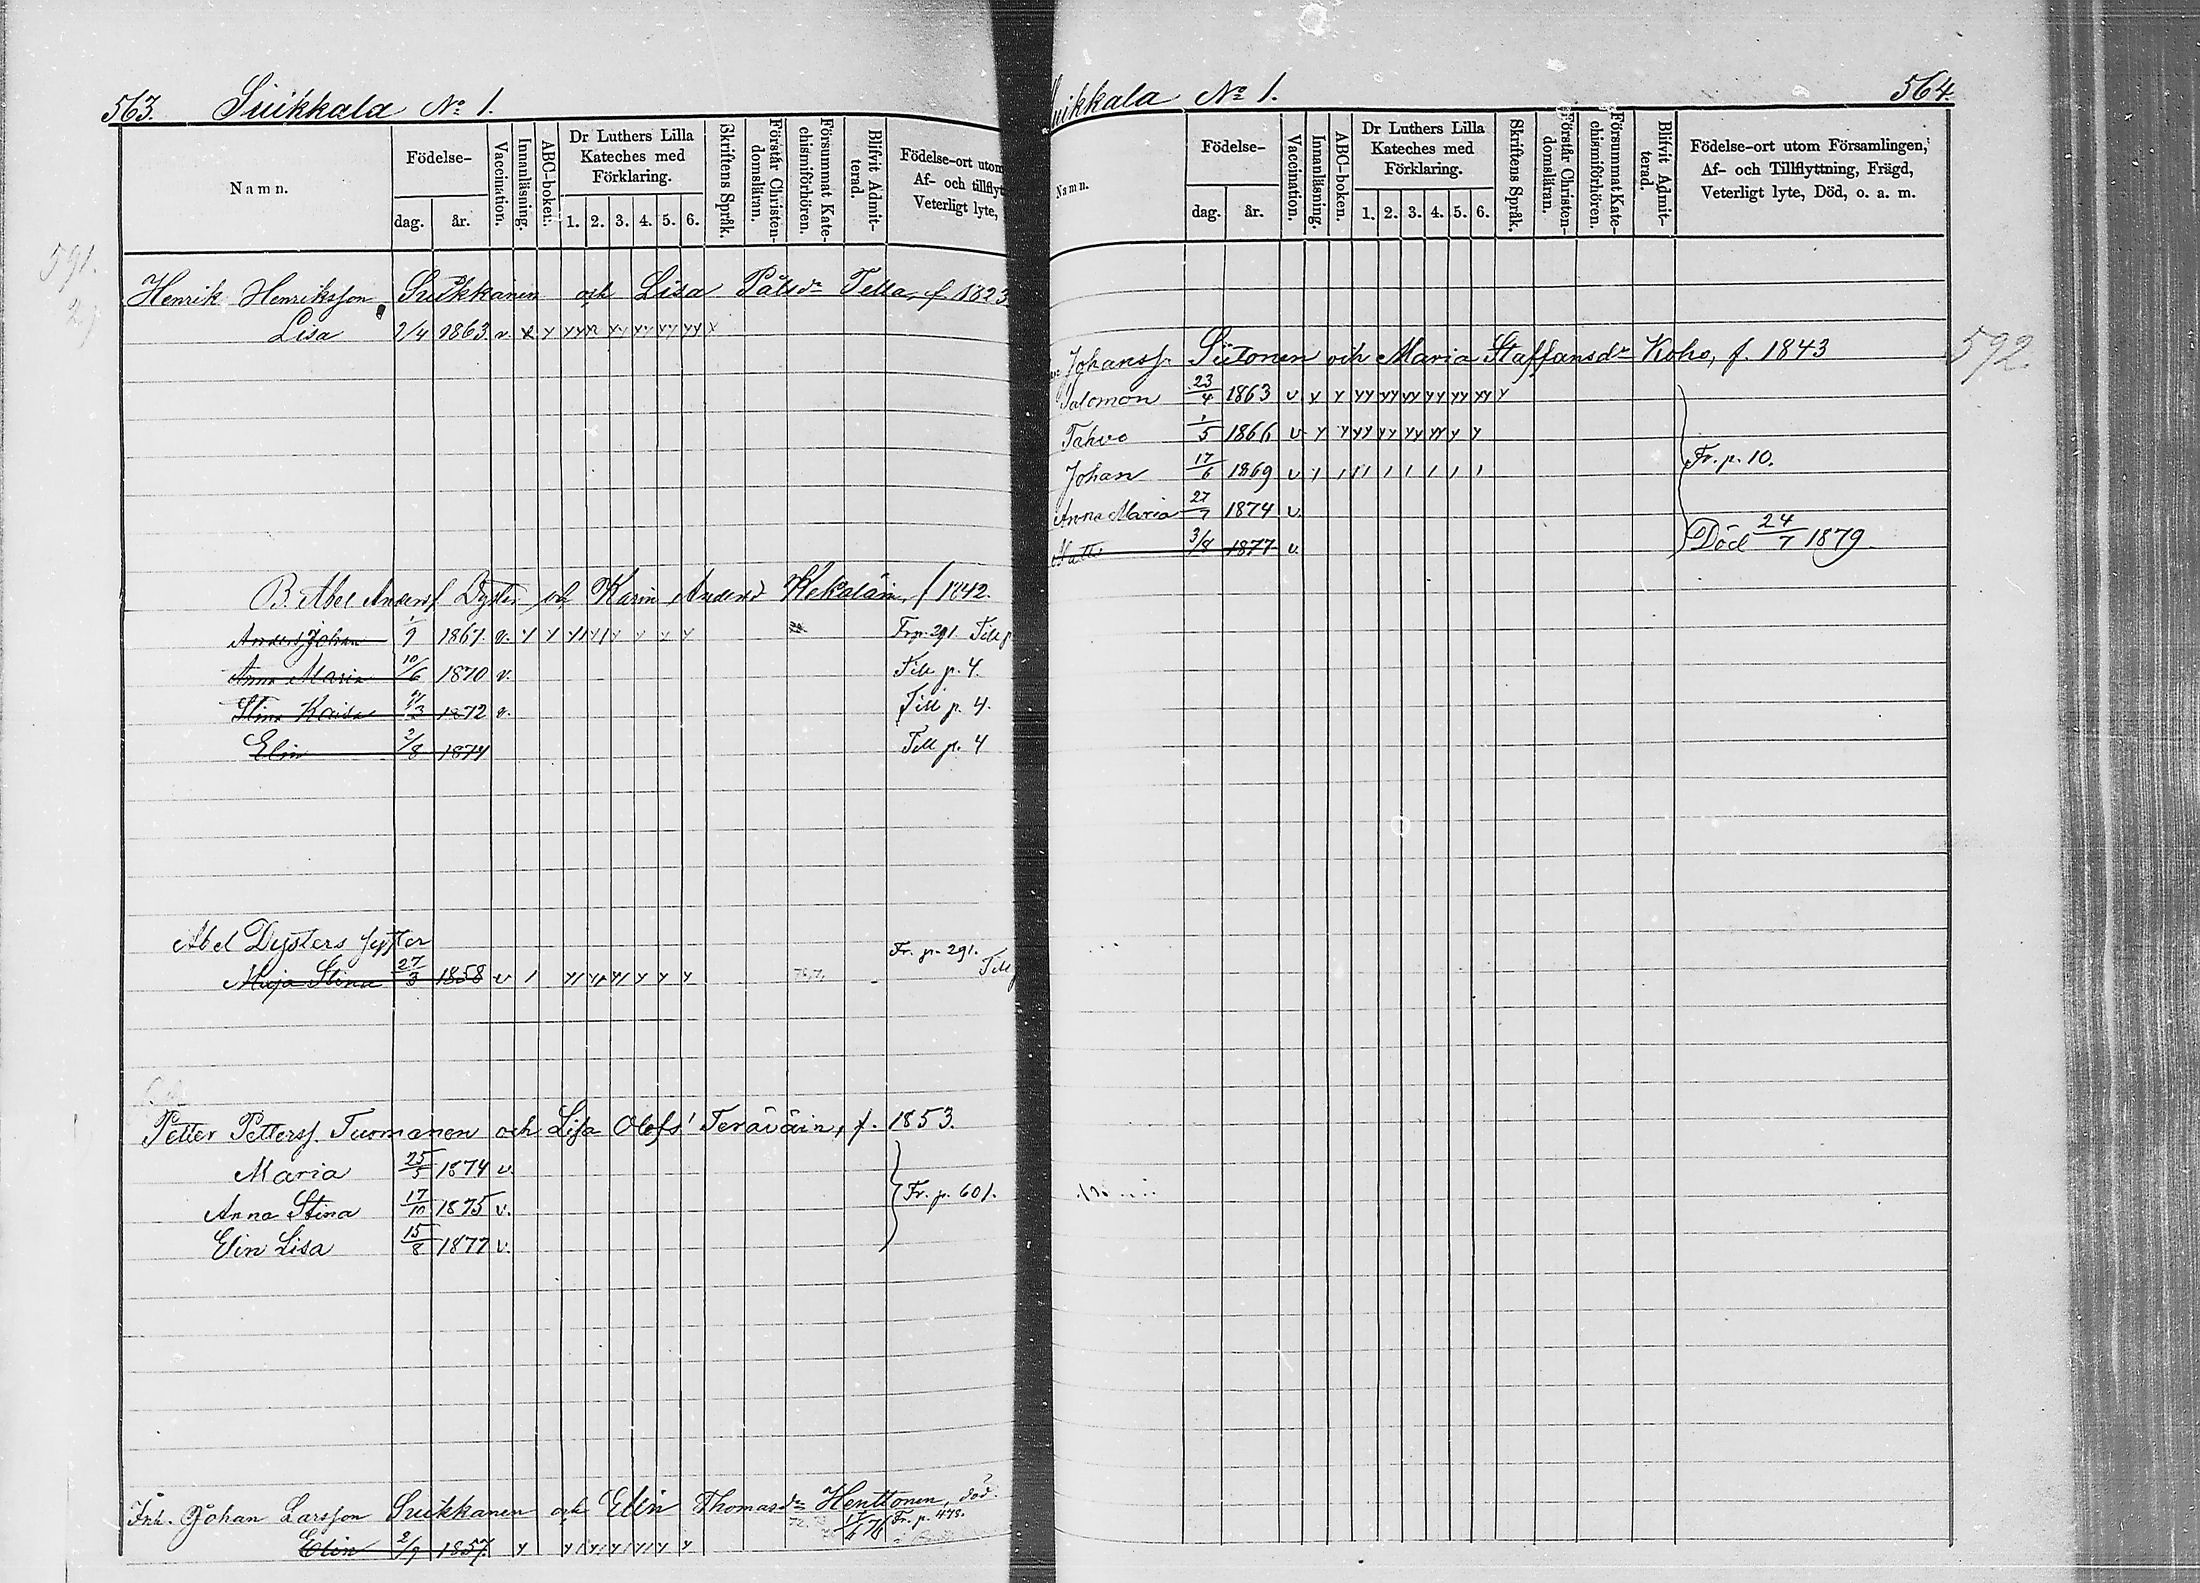 563. Suikkala No 1.
Namn.
Födelse-
dag. år.
Vaccination.
Innanläsning.
ABC-boken.
Dr Luthers Lilla Kateches med Förklaring.
1. 2. 3. 4. 5. 6.
Skriftens Språk.
Förstår Christen-domsläran.
Försummat Kate-chismiförhören.
Blifvit Admit-terad.
Födelse-ort utom
Af- och tillflyt
Veterligt lyte,
591.
Henrik Henriksson Suikkanen och Lisa Pålsdr Tella, f. 1823
Lisa 2/4 1863 v. x y yy yy yy yy yy yy x
B. Abel Andersf Dyster och Karin Andersd Kekäläin, f 1842.
Anders Johan 1/9 1867. v. y y
Frp. 291. Till p
Anna Maria 10/6 1870 v. Till p. 4.
Stina Kaisa 1872 v. Till p. 4.
Elin 2/8 1874 Till p. 4
Abel Dysters syster
Fr. p. 291.
Maja Stina 27/3 1858 v 1 Till
Petter Petterss. Tuomanen och Lisa Olofs' Teräväin, f. 1853.
Maria 25/5 1874 v.
Anna Stina 17/10 1875 v. Fr. p. 601.
Elin Lisa 15/8 1877 v.
Inh. Johan Larsson Suikkanen och Elin Thomasdr Henttonen, död.
Fr. p. 478.
Elin 2/9 1857. y
uikkala No 1. 564
Namn.
Födelse-
dag. år.
Vaccination.
Innanläsning.
ABC-boken.
Dr Luthers Lilla Kateches med Förklaring.
1. 2. 3. 4. 5. 6.
Skriftens Språk.
Förstår Christen-domsläran.
Försummat Kate-chismiförhören.
Blifvit Admit-terad.
Födelse-ort utom Församlingen,
Af- och Tillflyttning, Frägd,
Veterligt lyte, Död, o. a. m.
Johanss. Siitonen och Maria Staffansdr Koho, f. 1843
592.
Salomon 23/4 1863 v y y yy yy yy yy yy yy y
Tahvo 1/5 1866 v y y yy yy yy yy y y
Johan 17/6 1869 v 1 1 11 1 1 1 1 1 Fr. p. 10.
Anna Maria 27/7 1874 v.
Matti 3/8 1877 v. Död 24/7 1879.